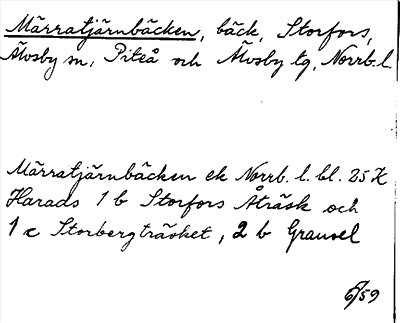 Märratjärnbäcken, bäck, Storfors,
Älvsby sn, Piteå och Älvsby tg, Norrb. l.
Märratjärnbäcken ek Norrb. l. bl. 25 K
Harads 1 b Storfors Åträsk och
1 c Storbergträsket, 2 b Gransel
6/59